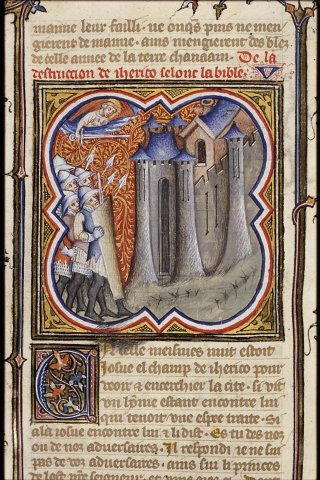 manne leur failli. ne onqs puis ne men
gierent de manne. ains mengierent des blez
de celle annee de la terre chanaam. De la
destruction de iherico selonc la bible.
En celle meismes nuit estoit
iosue el champ de iherico pour
veoir & encerchier la cite. si vit
un home estant encontre lui
qui tenoit une espee traite. Si
ala iosue encontre lui & li dist. Es tu des noz
ou de noz adversaires. Il respondi ie ne sui
pas de voz adversaires. ains sui li princes
de lost nre seigneur.